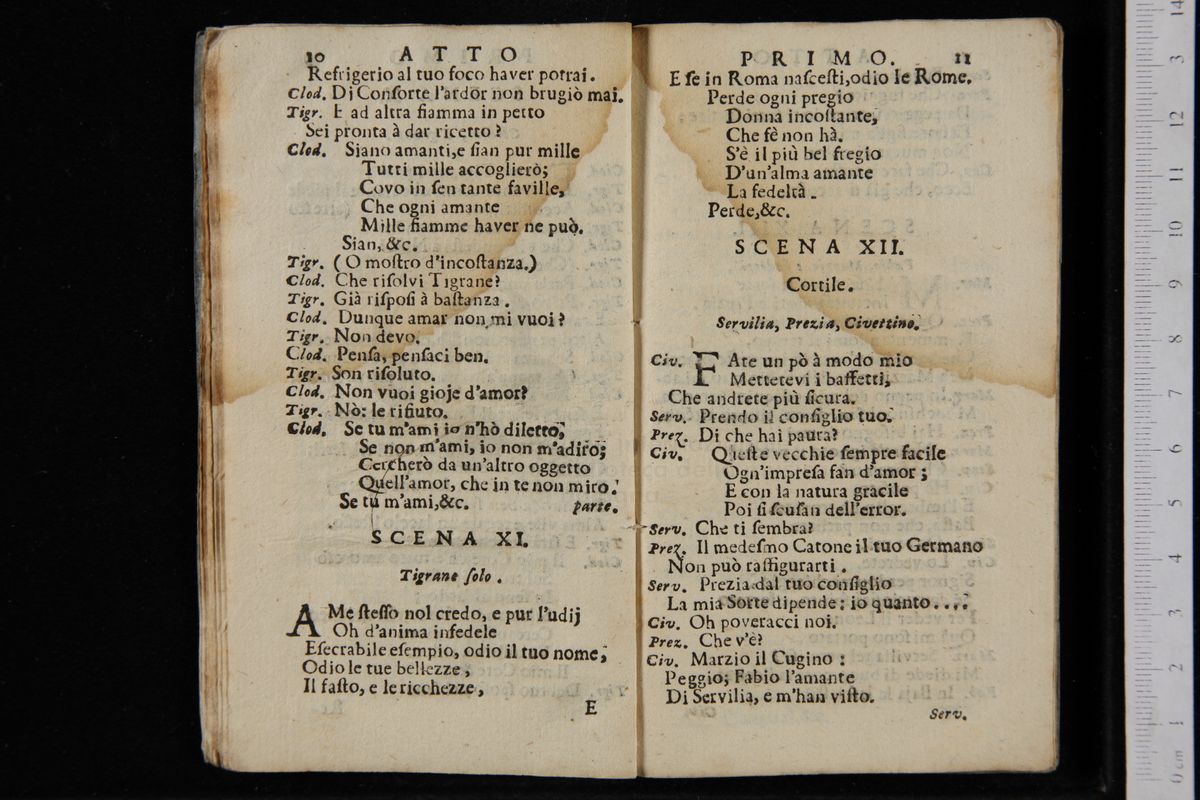 10 ATTO
Refrigerio al tuo foco haver potrai.
Clod. Di Conſorte l'ardor non brugiò mai.
Tigr. E ad altra fiamma in petto
Sei pronta à dar ricetto?
Clod. Siano amanti, e ſian pur mille
Tutti mille accoglierò;
Covo in ſen tante faville,
Che ogni amante
Mille fiamme haver ne può.
Sian, &c.
Tigr. (O moſtro d'incoſtanza.)
Clod. Che riſolvi Tigrane?
Tigr. Già riſpoſi à baſtanza.
Clod. Dunque amar non mi vuoi?
Tigr. Non devo.
Clod. Penſa, penſaci ben.
Tigr. Son riſoluto.
Clod. Non vuoi gioje d'amor?
Tigr. Nò: le rifiuto.
Clod. Se tu m'ami io n'hò diletto;
Se non m'ami, io non m'adiro;
Cercherò da un'altro oggetto
Quell'amor, che in te non miro.
Se tu m'ami, &c. parte.
SCENA XI.
Tigrane ſolo.
A Me ſteſſo nol credo, e pur l'udij
Oh d'anima infedele
Eſecrabile eſempio, odio il tuo nome;
Odio le tue bellezze,
Il faſto, e le ricchezze,
E
PRIMO. 11
E ſe in Roma naſceſti, odio le Rome.
Perde ogni pregio
Donna incoſtante,
Che fè non hà.
S'è il più bel fregio
D'un'alma amante
La fedeltà.
Perde, &c.
SCENA XII.
Cortile.
Servilia, Prezia, Civettino.
Civ. FAte un pò à modo mio
Mettetevi i baffetti,
Che andrete più ſicura.
Serv. Prendo il conſiglio tuo.
Prez. Di che hai paura?
Civ. Queſte vecchie ſempre facile
Ogn'impreſa fan d'amor;
E con la natura gracile
Poi ſi ſcuſan dell'error.
Serv. Che ti ſembra?
Prez. Il medeſmo Catone il tuo Germano
Non può raffigurarti.
Serv. Prezia dal tuo conſiglio
La mia Sorte dipende: io quanto....
Civ. Oh poveracci noi.
Prez. Che v'è?
Civ. Marzio il Cugino:
Peggio; Fabio l'amante
Di Servilia, e m'han viſto.
Serv.